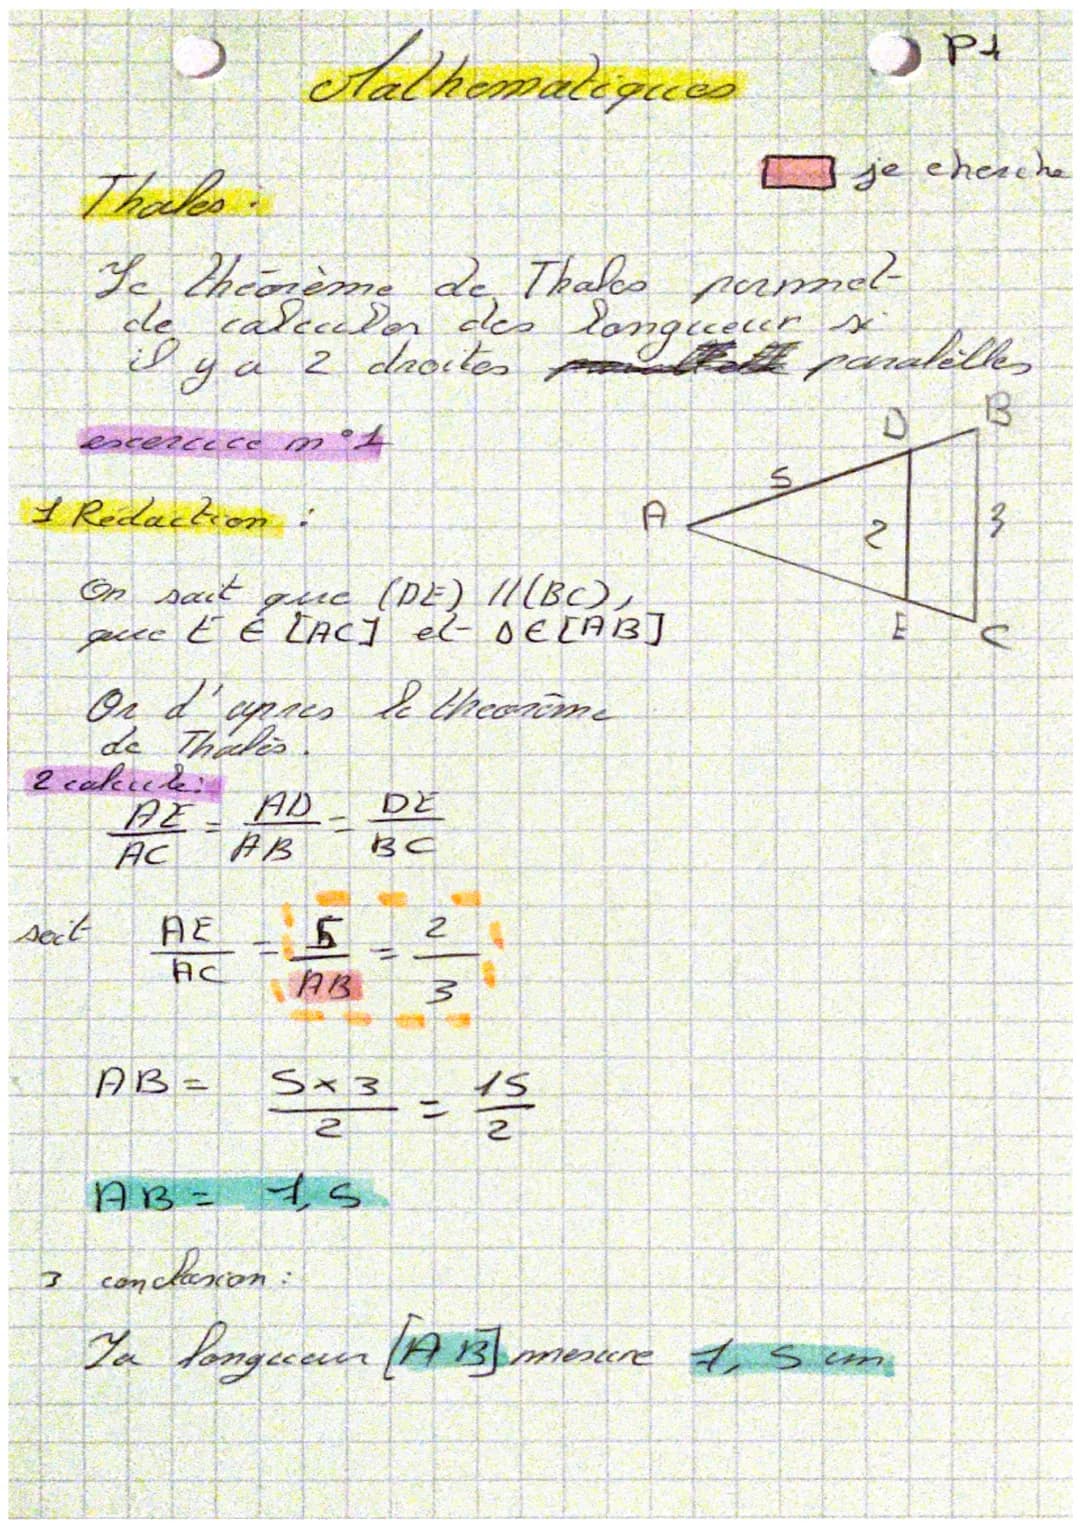 P1
Mathematiques
je cherche
Thales :
Le théorème de Thales permet
de calculer des longueur si
il y a 2 droites paralèlles
excercice n°1
B
D
5
A
2
3
E
C
1 Rédaction :
On sait que (DE) //(BC),
que E ∈ [AC] et D∈[AB]
Or d'apres le theorème
de Thalès.
2 calcule:
AE/AC = AD/AB = DE/BC
soit AE/AC = 5/AB = 2/3
AB = 5x3/2 = 15/2
AB = 7,5
3 conclusion :
La longueur [AB] mesure 7,5 cm